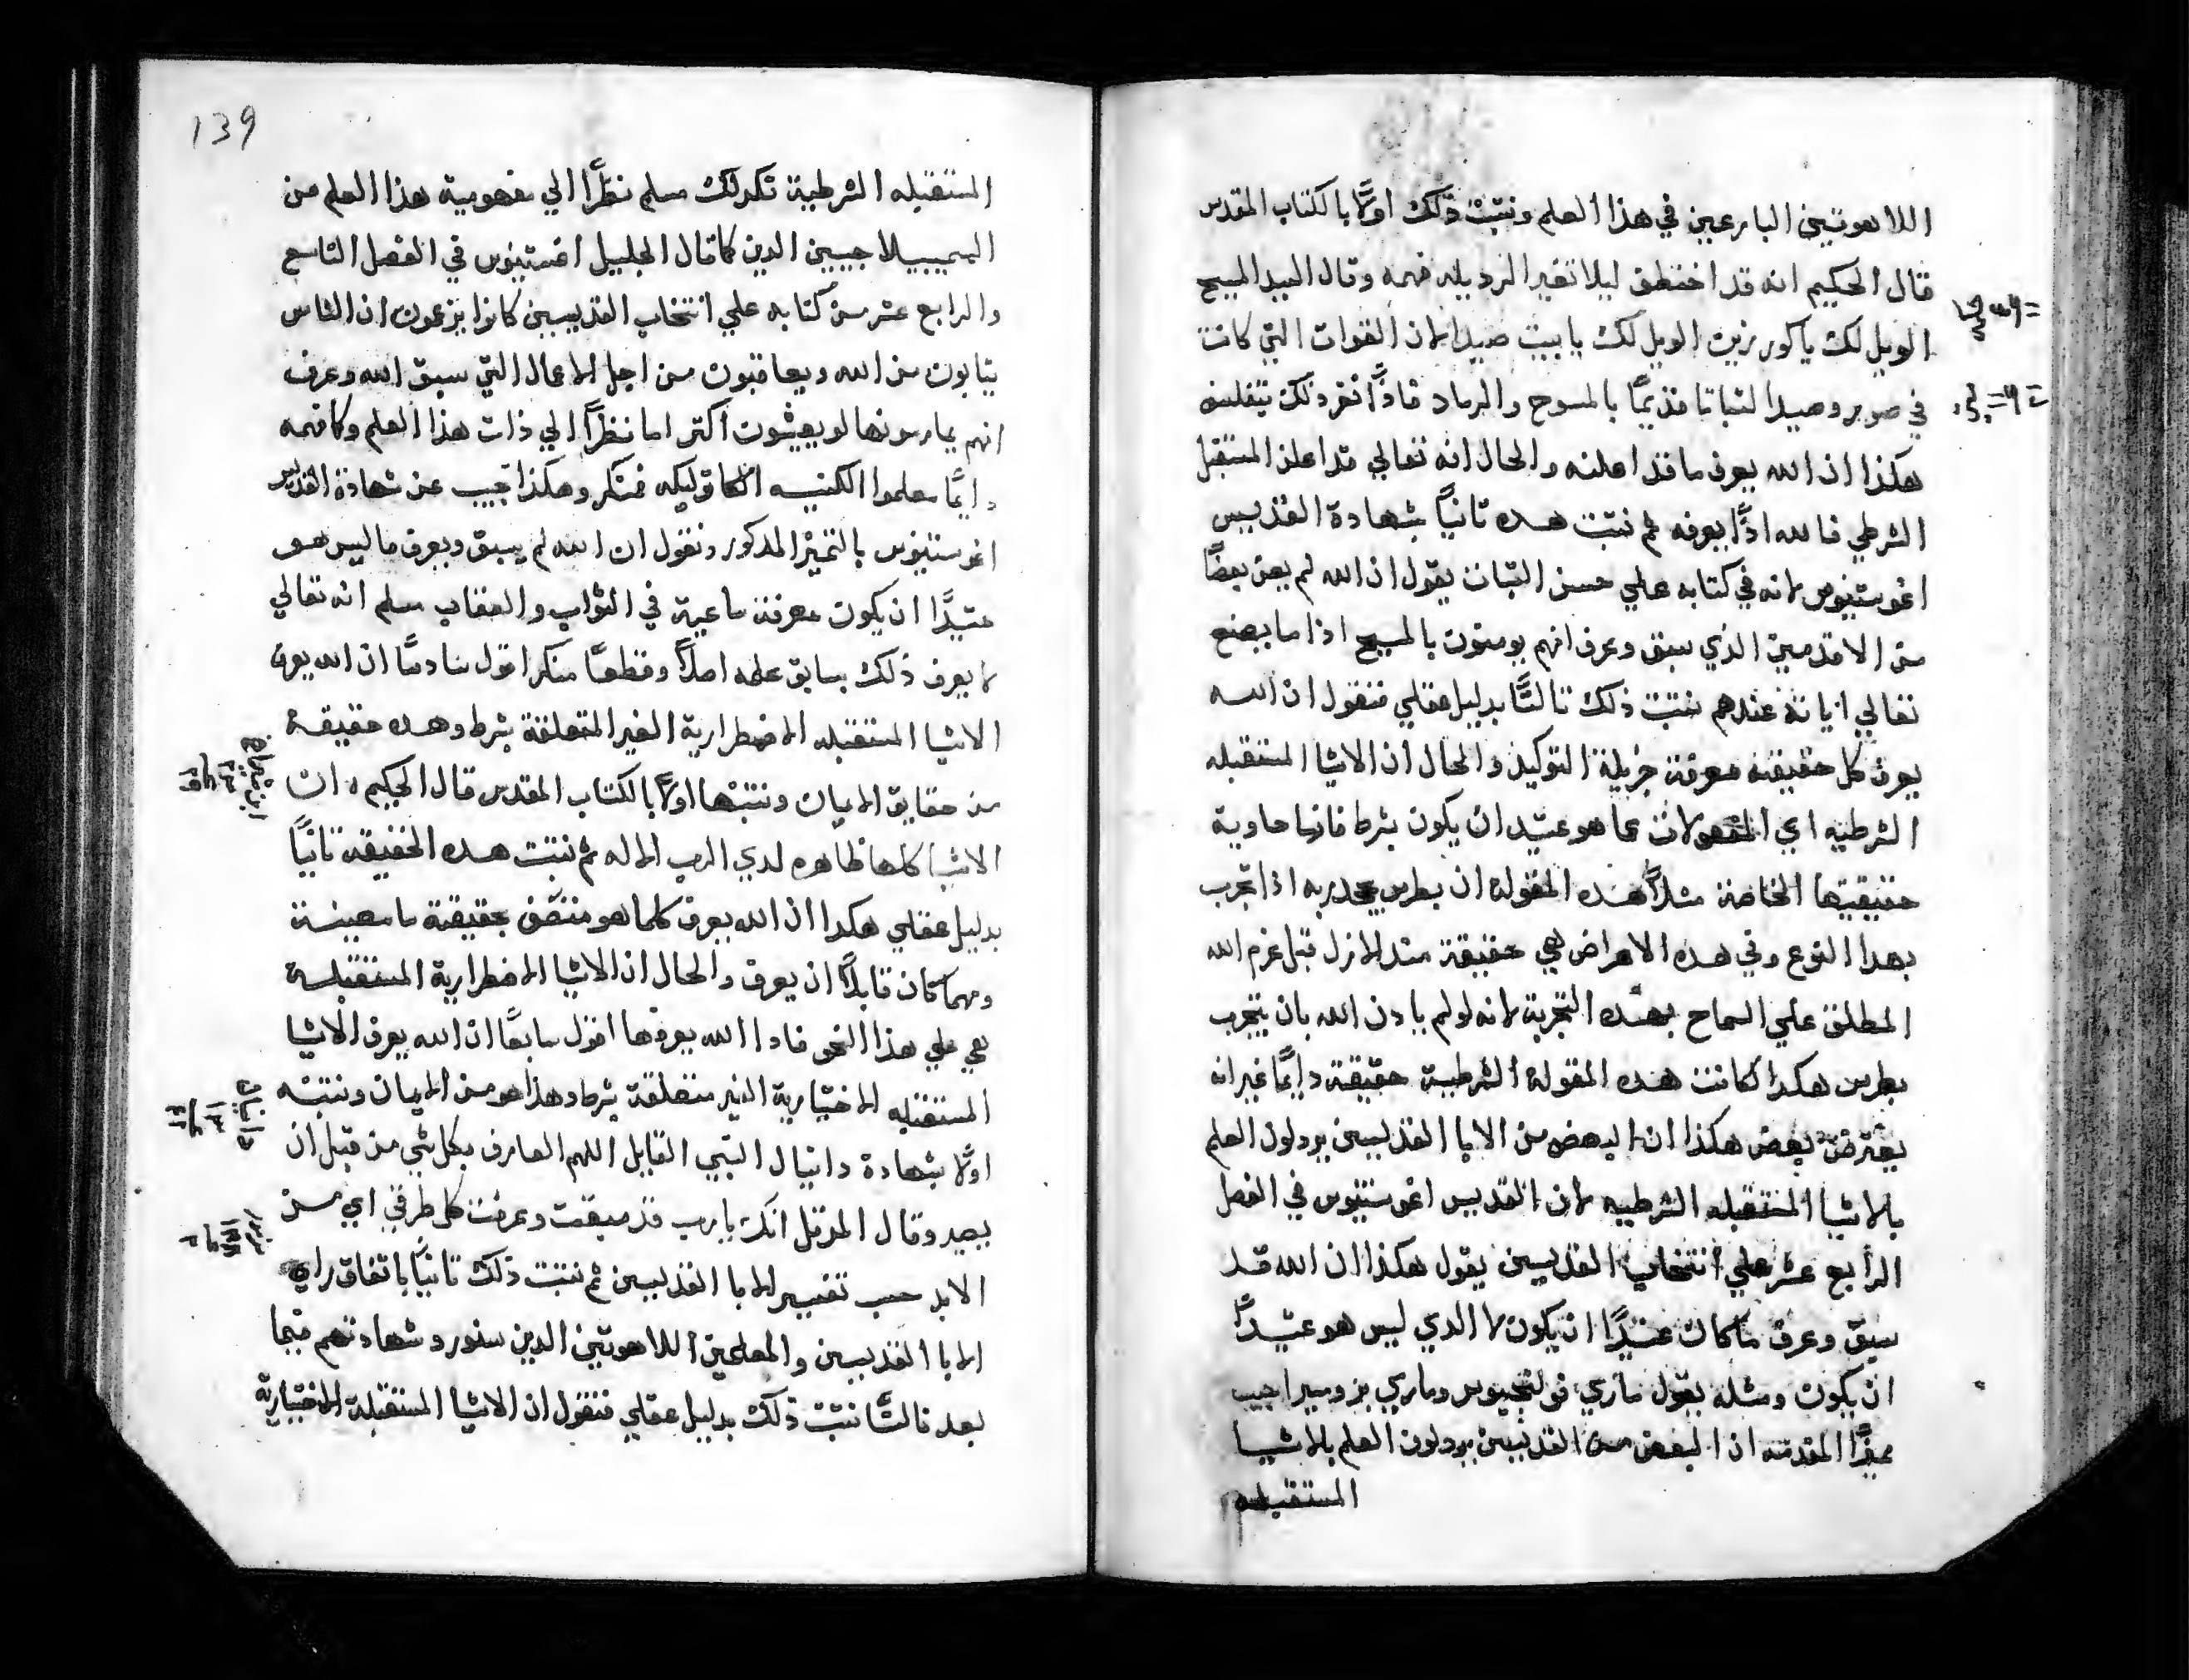 اللاهوتيين البارعين في هذا العلم ونثبت ذلك اولًا بالكتاب المقدس
قال الحكيم انه قد اختطف ليلا تغير الرديله فهمه وقال السيد المسيح
الويل لك يا كورزين الويل لك يا بيت صيدا لان القوات التي كانت
في صور وصيدا لتابتا قديمًا بالمسوح والرماد فاذًا نقر ذلك
هكذا ان الله يعرف ما قد اعلنه والحال انه تعالي قد اعلن المستقبل
الشرطي فالله اذًا يعرفه ثم نثبت هده ثانيًا بشهادة القديس
اغوستينوس لانه في كتابه علي حسن الثبات يقول ان الله لم يعن بعضًا
من الاقدمين الذي سبق وعرف انهم يومنون بالمسيح اذا ما يصنع
تعالي اياته عندهم نثبت ذلك ثالثًا بدليل عقلي فنقول ان الله
يعرف كل حقيقة معرفة جزيلة التوكيد والحال ان الاشيا المستقبله
الشرطيه اي المقولات عما هو عتيد ان يكون بشرط فانها حاوية
حقيقتها الخاصة مثلًا هذه المقولة ان بطرس يجحد ربه اذا تجرب
بهدا النوع وفي هده الاعراض هي حقيقة منذ الازل قبل عزم الله
المطلق علي السماح بهذه التجربة لانه لو لم يادن الله بان يتجرب
بطرس هكدا لكانت هذه المقولة الشرطية حقيقة دايمًا غير انه
يعترض بعض هكذا ان البعض من الابا القديسين يرذلون العلم
بالاشيا المستقبله الشرطيه لان القديس اغوستينوس في الفصل
الرابع عشر علي انتخاب القديسين يقول هكذا ان الله قد
سبق وعرف ما كان عتيدًا ان يكون لا الدي ليس هو عتيدًا
ان يكون ومثله يقول ماري فولنجيوس وماري بروسبرا جيب
مميزًا المقدمة ان البعض من القديسين يرذلون العلم بالاشيا
المستقبله
139
المستقبله الشرطية تكدلك مسلم نظرًا الي مفهومية هذا العلم من
الدين كما قال الجليل اغستينوس في الفصل التاسع
والرابع عشر من كتابه علي انتخاب القديسين كانوا يزعمون ان الناس
يثابون من الله ويعاقبون من اجل الاعمال التي سبق الله وعرف
انهم يمارسونها لو يعيشون اكثر اما نظرًا الي ذات هذا العلم وكافهمه
دايمًا معلموا الكنيسه الكاتوليكه فمنكر وهكذا نجيب عن شهادة القديس
اغوستينوس بالتمييز المدكور ونقول ان الله لم يسبق ويعرف ما ليس هو
عتيدًا ان يكون معرفة ساعية في الثواب والعقاب مسلم انه تعالي
لا يعرف ذلك بسابق علمه اصلًا وقطعًا منكر اقول سادسًا ان الله يعرف
الاشيا المستقبله الاضطرارية الغير المتعلقة بشرط وهده حقيقة
من حقايق الايمان ونثبتها اولًا بالكتاب المقدس قال الحكيم ان
ابن شيراخ
الاشيا كلها ظاهره لدي الرب الاله ثم نثبت هده الحقيقة ثانيًا
بدليل عقلي هكدا ان الله يعرف كلما هو متصف بحقيقة ما معينة
ومهما كان قابلًا ان يعرف والحال ان الاشيا الاضطرارية المستقبلة
هي علي هذا النحو فادا الله يعرفها اقول سابعًا ان الله يعرف الاشيا
المستقبله الاختيارية الغير متعلقة بشرط وهذا هو من الايمان ونثبته
دانيال
١٣
٤٢
اولًا بشهادة دانيال النبي القايل اللهم العارف بكل شي من قبل ان
يصير وقال المرتل انك يا رب قد سبقت وعرفت كل طرقي اي من
مز
١٣٨
الابد حسب تفسير الابا القديسين ثم نثبت ذلك ثانيًا باتفاق راي
الابا القديسين والمعلمين اللاهوتيين الدين سنورد شهادتهم فيما
بعد ثالثًا نثبت ذلك بدليل عقلي فنقول ان الاشيا المستقبلة الاختيارية